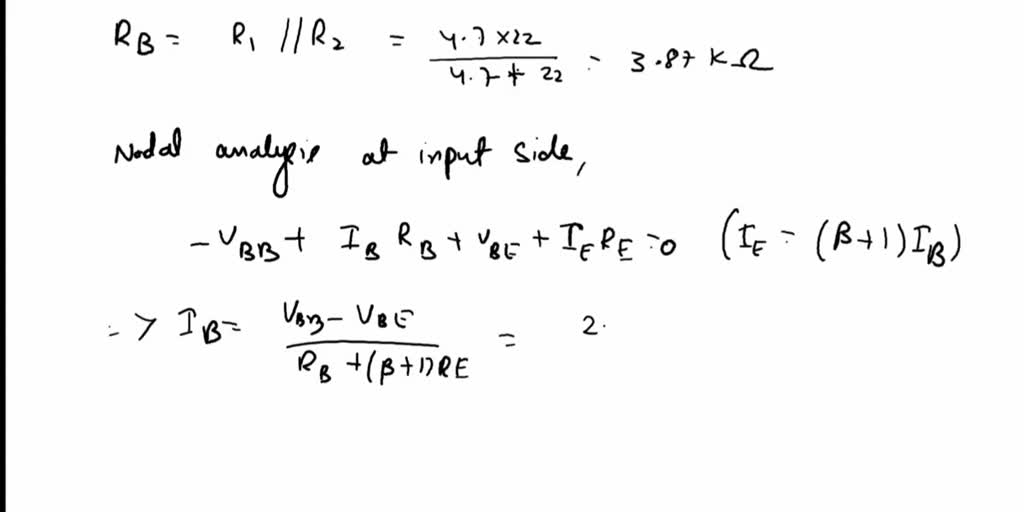 R_B = R_1 // R_2 = (4.7 × 22) / (4.7 + 22) = 3.87 KΩ
Nodal analysis at input side,
- V_BB + I_B R_B + V_BE + I_E R_E = 0 (I_E = (β+1) I_B)
=> I_B = (V_BB - V_BE) / (R_B + (β+1) R_E) = 2.